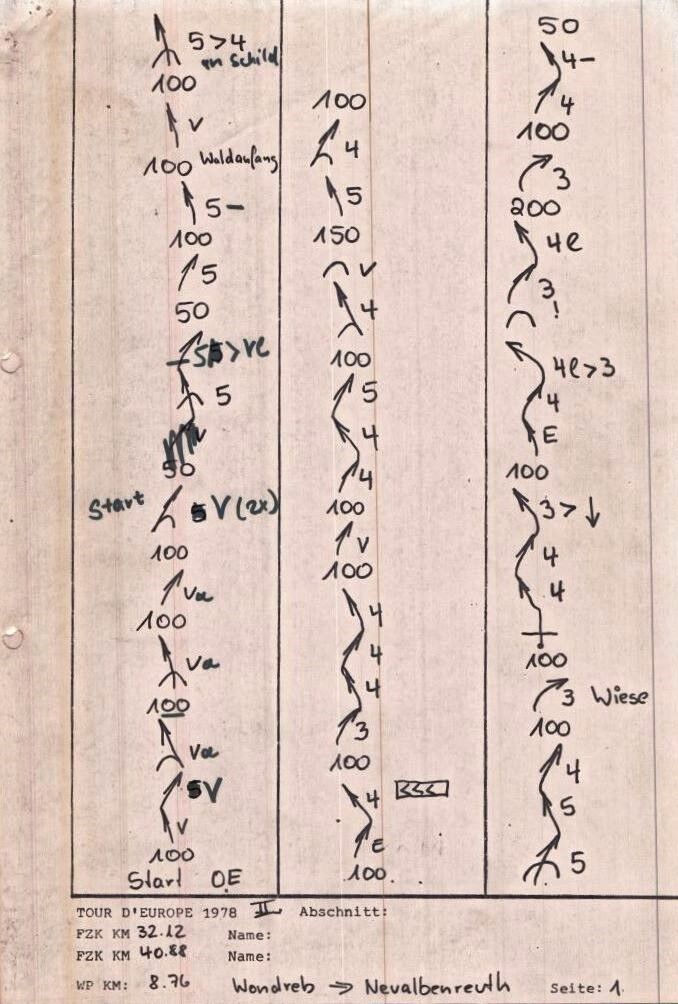 5 > 4
an Schild
100
V
100 Waldanfang
5 –
100
5
50
> Ve
5
50
Start V (2x)
100
Va
100
Va
100
Va
5 V
V
100
Start OE
100
4
5
150
V
4
100
5
4
4
100
V
100
4
4
4
3
100
4 <<<
E
100
50
4 –
4
100
3
200
4e
3
!
4e > 3
4
E
100
3 > ↓
4
4
100
3 Wiese
100
4
5
5
TOUR D'EUROPE 1978 II Abschnitt:
FZK KM 32.12 Name:
FZK KM 40.88 Name:
WP KM: 8.76 Wondreb → Neualbenreuth Seite: 1.